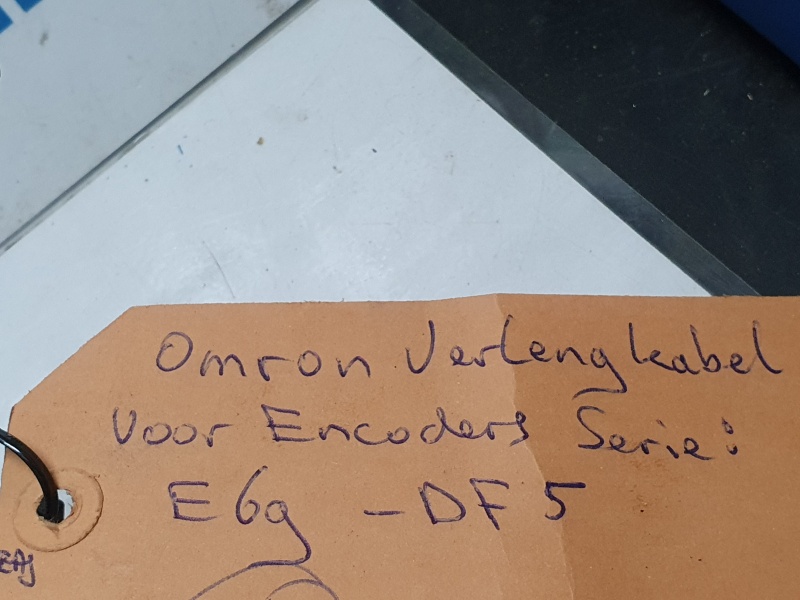 Omron Verlengkabel
voor Encoders Serie:
E6g - DF5